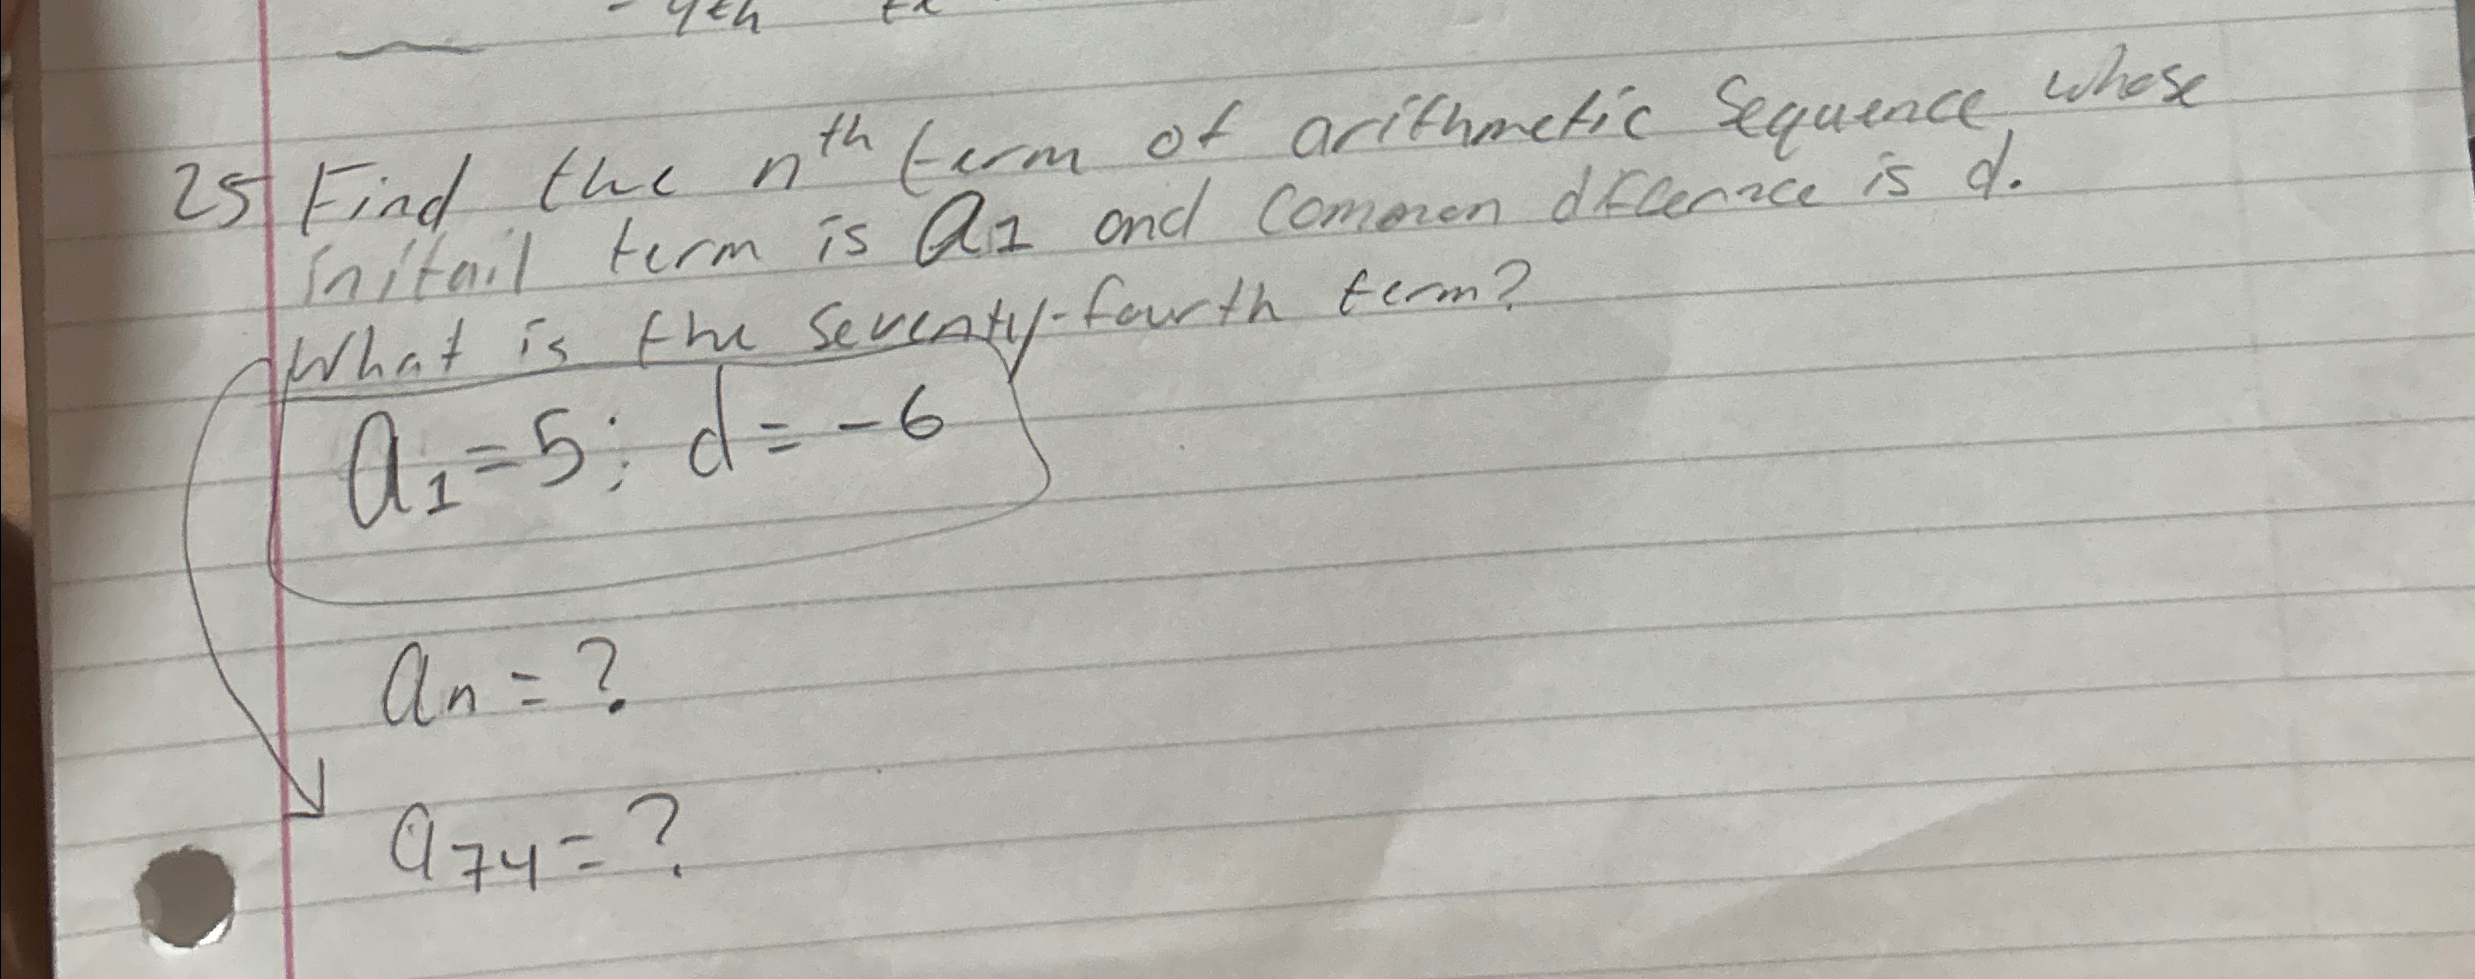 4th
25 Find the nth term of arithmetic Sequence whose
initail term is a1 and common dfference is d.
What is the seventy-fourth term?
a1 = 5; d = -6
an = ?
a74 = ?